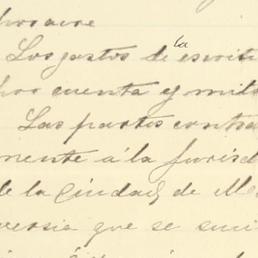 Los gastos de la escritu
por cuenta y mita
Las partes contra
mente á la Jurisd
de la Ciudad de Me
versia que se susci